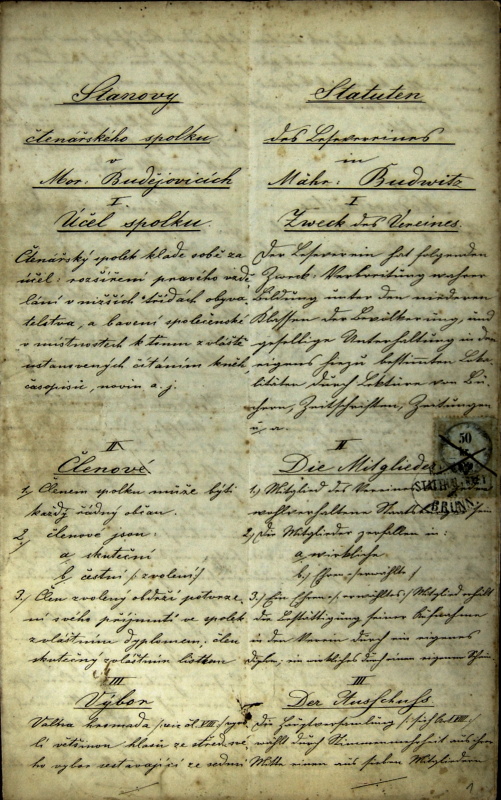 Stanovy
čtenářského spolku
v
Mor: Budějovicích
I
Účel spolku.
Čtenářský spolek klade sobě za
účel: rozšíření pravého vzdě
lání v nižších třídách obyva
telstva, a bavení společenské
v místnostech k tomu zvláště
ustanovených čítáním knih
časopisů, novin a. j.
II
Členové
1, Členem spolku může býti
každý řádný občan.
2, členové jsou:
a, skuteční
b, čestní /: zvolení :/
3,) Člen zvolený obdrží potvrze
ní svého přijmutí ve spolek
zvláštním dyplomem, člen
skutečný zvláštním lístkem
III
Výbor
Valná hromada /: viz čl. VIII :/
li většinou hlasů ze střed
ho výbor sestávající ze sedmi
Statuten
des Lesevereines
in
Mähr: Budwitz
I
Zweck des Vereines.
Der Leseverein hat folgenden
Zweck: Verbreitung wahrer
Bildung unter den niederen
Klassen der Bevölkerung, und
gesellige Unterhaltung in den
eigens hiezu bestimmten Loka
litäten durch Lektüre von Bü
chern, Zeitschriften, Zeitungen
u. a.
II
Die Mitglieder
1.) Mitglied des Vereines
wohlverhaltene
2,) Die Mitglieder zerfallen in:
a, wirkliche
b,) Ehren /: erwählte :/
3.) Ein Ehren /: erwähltes :/ Mitglied erhält
die Bestättigung seiner Aufnahme
in den Verein durch ein eigenes
Diplom, ein wirkliches durch einen eigenen Schein
III
Der Ausschuss.
Die Hauptversammlung /: sieh Art. VIII :/
wählt durch Stimmenmehrheit aus ihrer
Mitte einen aus sieben Mitgliedern
50
BRÜNN
1